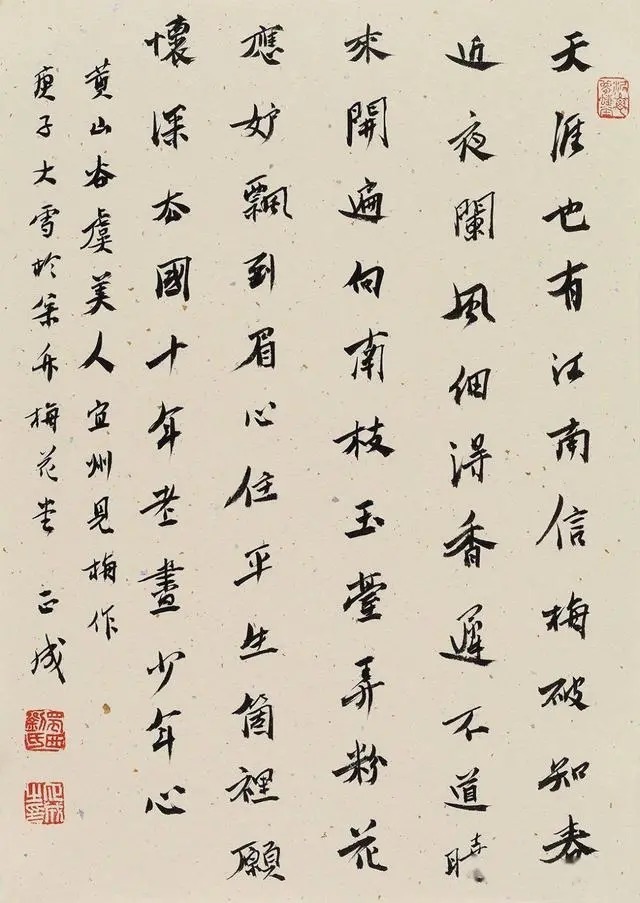 天涯也有江南信梅破知春
近夜闌風細得香遲不道曉
来開遍向南枝玉臺弄粉花
應妒飄到眉心住平生箇裡願
懷深去國十年老盡少年心
黄山谷虞美人宜州見梅作
庚子大雪於舟梅花堂 正成
蜀西劉氏
正成之印